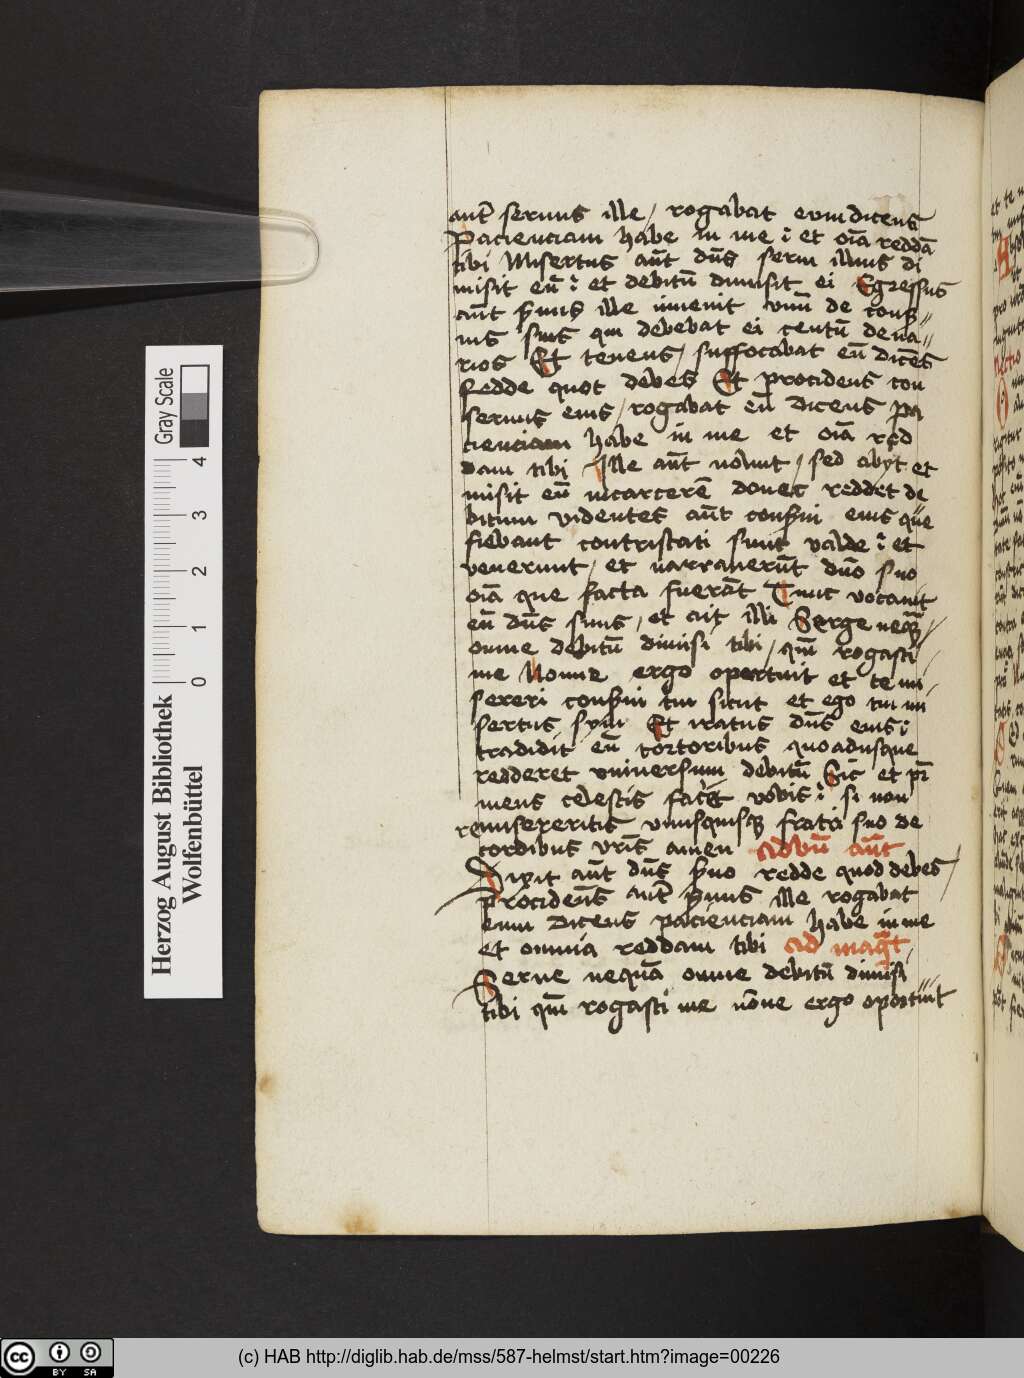 aut̄ seruus ille / rogabat eum dicens
Pacienciam habe in me ⁝ et oīa reddā
tibi Misertus aūt dn̄s serui illius di
misit eū ⁝ et debitū dimisit ei Egressus
aūt s̄uus ille inuenit vnū de cons̄〃
uis suis qui debebat ei centū dena〃
rios Et tenens / suffocabat eū dicēs
Redde quot debes Et procidens con
seruus eius / rogabat eū dicens pa
cienciam habe in me et oīa red
dam tibi Ille aūt noluit / sed abyt et
misit eū incarcerē donec reddet de
bitum videntes aūt cons̄ui eius que
fiebant contristati sunt valde ⁝ et
venerunt / et narrauerūt dn̄o suo
oīa que facta fuerāt Tunc vocauit
eū dn̄s suus / et ait illi Serge neq̄ /
omne debitū dimisi tibi / qm̄ rogasti
me Nonne ergo oportuit et te mi
sereri cons̄ui tui sicut et ego tui mi
sertus sum Et iratus dn̄s eius ⁝
tradidit eū tortoribus quoadusque
redderet vniuersum debitū Sic et pr̄
meus celestis faciet vobis ⁝ si non
remisereritis vnusquisq₃ fratri suo de
cordibus vr̄is amen ad bn̄ aūt
Dixit aūt dn̄s s̄uo redde quod debes /
procidens aut̄ s̄uus ille rogabat
eum dicens pacienciam habe in me
et omnia reddam tibi ad maḡt
Serue nequā omne debitū dimisi
tibi qm̄ rogasti me nōne ergo oportuit
Herzog August Bibliothek
Wolfenbüttel
Gray Scale
0 1 2 3 4
(c) HAB http://diglib.hab.de/mss/587-helmst/start.htm?image=00226
cc BY SA